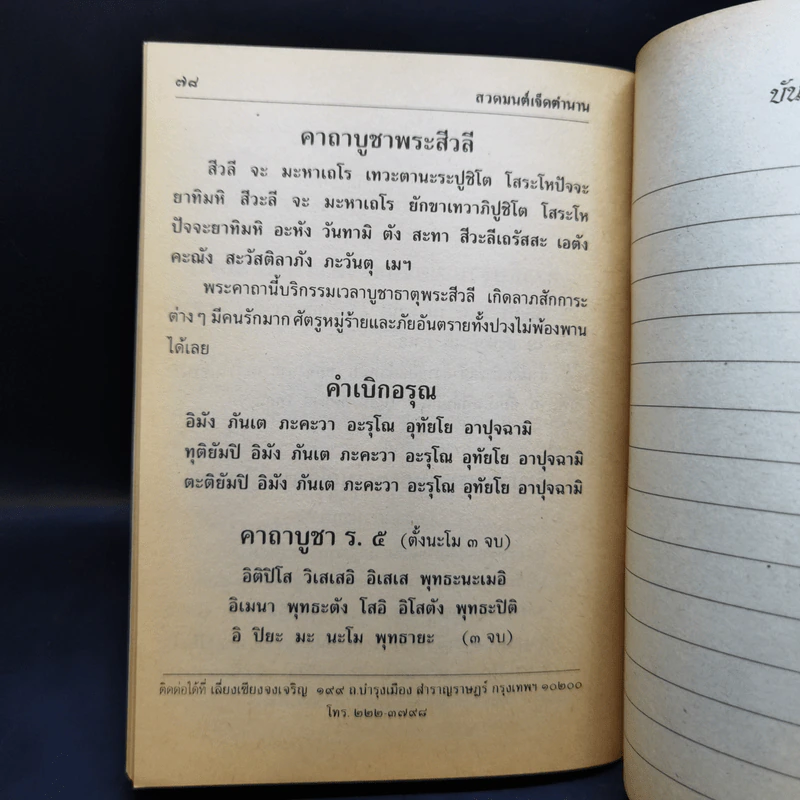 ๗๘
สวดมนต์เจ็ดตำนาน
คาถาบูชาพระสีวลี
สีวลี จะ มะหาเถโร เทวะตานะระปูชิโต โสระโหปัจจะ
ยาทิมหิ สีวะลี จะ มะหาเถโร ยักขาเทวาภิปูชิโต โสระโห
ปัจจะยาทิมหิ อะหัง วันทามิ ตัง สะทา สีวะลีเถรัสสะ เอตัง
คะณัง สะวัสติลาภัง ภะวันตุ เมฯ
พระคาถานี้บริกรรมเวลาบูชาธาตุพระสีวลี เกิดลาภสักการะ
ต่างๆ มีคนรักมาก ศัตรูหมู่ร้ายและภัยอันตรายทั้งปวงไม่พ้องพาน
ได้เลย
คำเบิกอรุณ
อิมัง ภันเต ภะคะวา อะรุโณ อุทัยโย อาปุจฉามิ
ทุติยัมปิ อิมัง ภันเต ภะคะวา อะรุโณ อุทัยโย อาปุจฉามิ
ตะติยัมปิ อิมัง ภันเต ภะคะวา อะรุโณ อุทัยโย อาปุจฉามิ
คาถาบูชา ร. ๕ (ตั้งนะโม ๓ จบ)
อิติปิโส วิเสเสอิ อิเสเส พุทธะนะเมอิ
อิเมนา พุทธะตัง โสอิ อิโสตัง พุทธะปิติ
อิ ปิยะ มะ นะโม พุทธายะ (๓ จบ)
ติดต่อได้ที่ เลี่ยงเซียงจงเจริญ ๑๙๙ ถ.บำรุงเมือง สำราญราษฎร์ กรุงเทพฯ ๑๐๒๐๐
โทร. ๒๒๒-๓๗๙๘